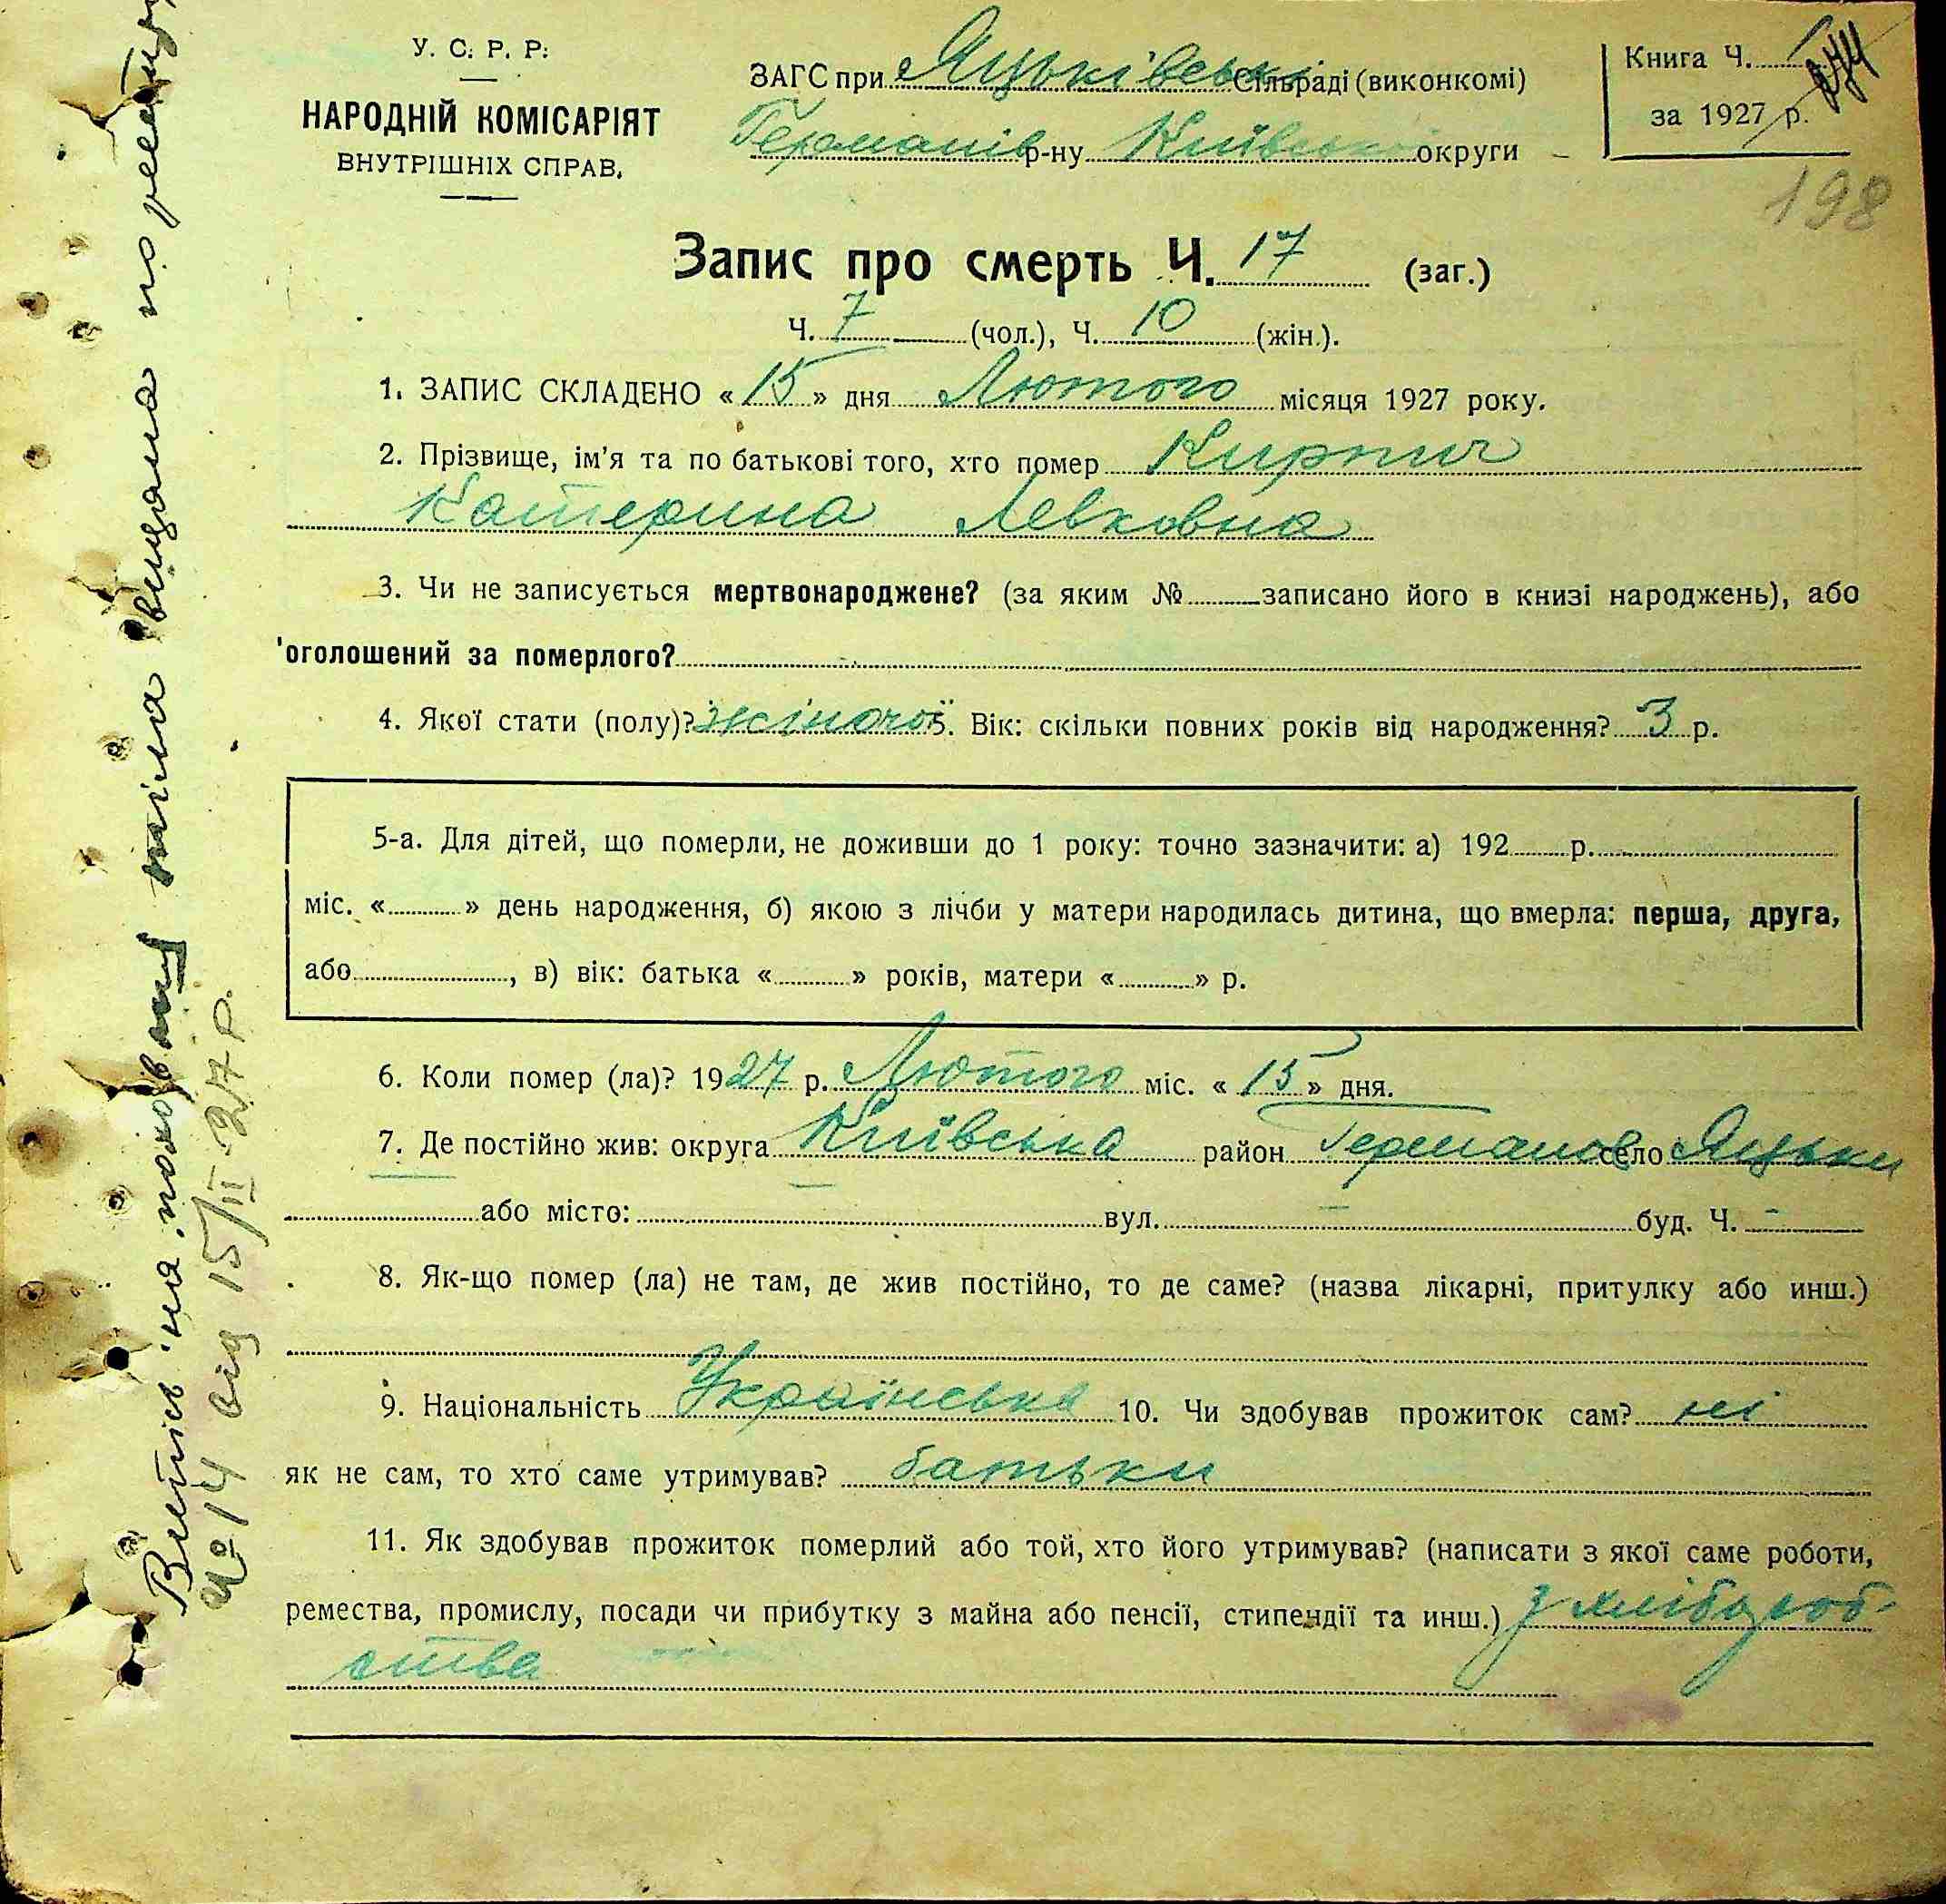 У. С. Р. Р.
НАРОДНІЙ КОМІСАРІЯТ
ВНУТРІШНІХ СПРАВ.
ЗАГС при Яцьківські Сільраді (виконкомі)
Германів р-ну Київської округи
Книга Ч.
за 1927 р.
198
Запис про смерть Ч. 17 (заг.)
Ч. 7 (чол.), Ч. 10 (жін.).
1. ЗАПИС СКЛАДЕНО « 15 » дня Лютого місяця 1927 року.
2. Прізвище, ім'я та по батькові того, хто помер Кирпич
Катерина Левковна
3. Чи не записується мертвонароджене? (за яким № записано його в книзі народжень), або
оголошений за померлого?
4. Якої стати (полу)? жіночої 5. Вік: скільки повних років від народження? 3 р.
5-а. Для дітей, що померли, не доживши до 1 року: точно зазначити: а) 192 р.
міс. « » день народження, б) якою з лічби у матери народилась дитина, що вмерла: перша, друга,
або , в) вік: батька « » років, матери « » р.
6. Коли помер (ла)? 1927 р. Лютого міс. « 15 » дня.
7. Де постійно жив: округа Київська район Германов село Яцьки
або місто: вул. – буд. Ч. –
8. Як-що помер (ла) не там, де жив постійно, то де саме? (назва лікарні, притулку або инш.)
9. Національність Українська 10. Чи здобував прожиток сам? ні
як не сам, то хто саме утримував? батьки
11. Як здобував прожиток померлий або той, хто його утримував? (написати з якої саме роботи,
ремества, промислу, посади чи прибутку з майна або пенсії, стипендії та инш.) з хлібороб-
ства
Витпсь на поховання тіла видана по реєстру
№ 14 від 15/II-27 р.